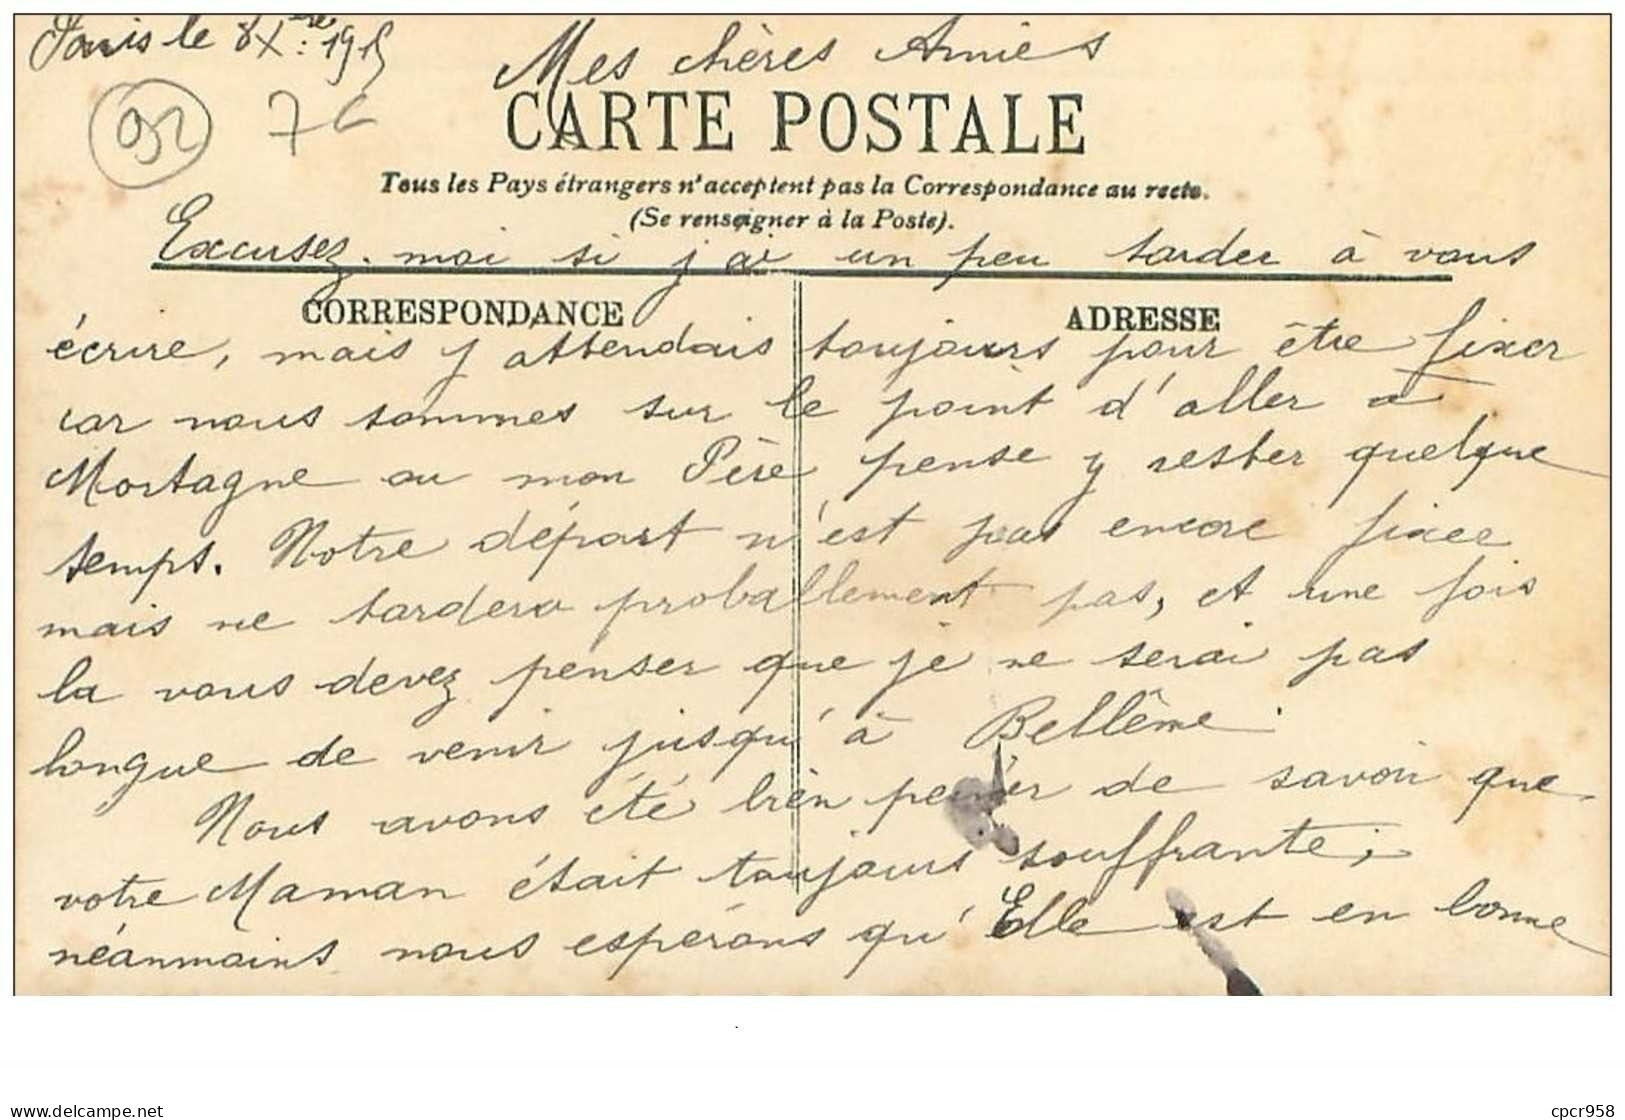 Paris le 8 Xbre: 1915
Mes chères Amies
92 7€
CARTE POSTALE
Tous les Pays étrangers n'acceptent pas la Correspondance au recto.
(Se renseigner à la Poste).
Excusez-moi si j'ai un peu tarder à vous
CORRESPONDANCE ADRESSE
écrire, mais j'attendais toujours pour être fixer
car nous sommes sur le point d'aller à
Mortagne ou mon Père pense y rester quelque
temps. Notre départ n'est pas encore fixer
mais ne tardera proballement pas, et une fois
la vous devez penser que je ne serai pas
longue de venir jusqu'à Bellême.
Nous avons été bien peiner de savoir que
votre Maman était toujours souffrante;
néanmains nous espérons qu'Elle est en bonne
cpcr958